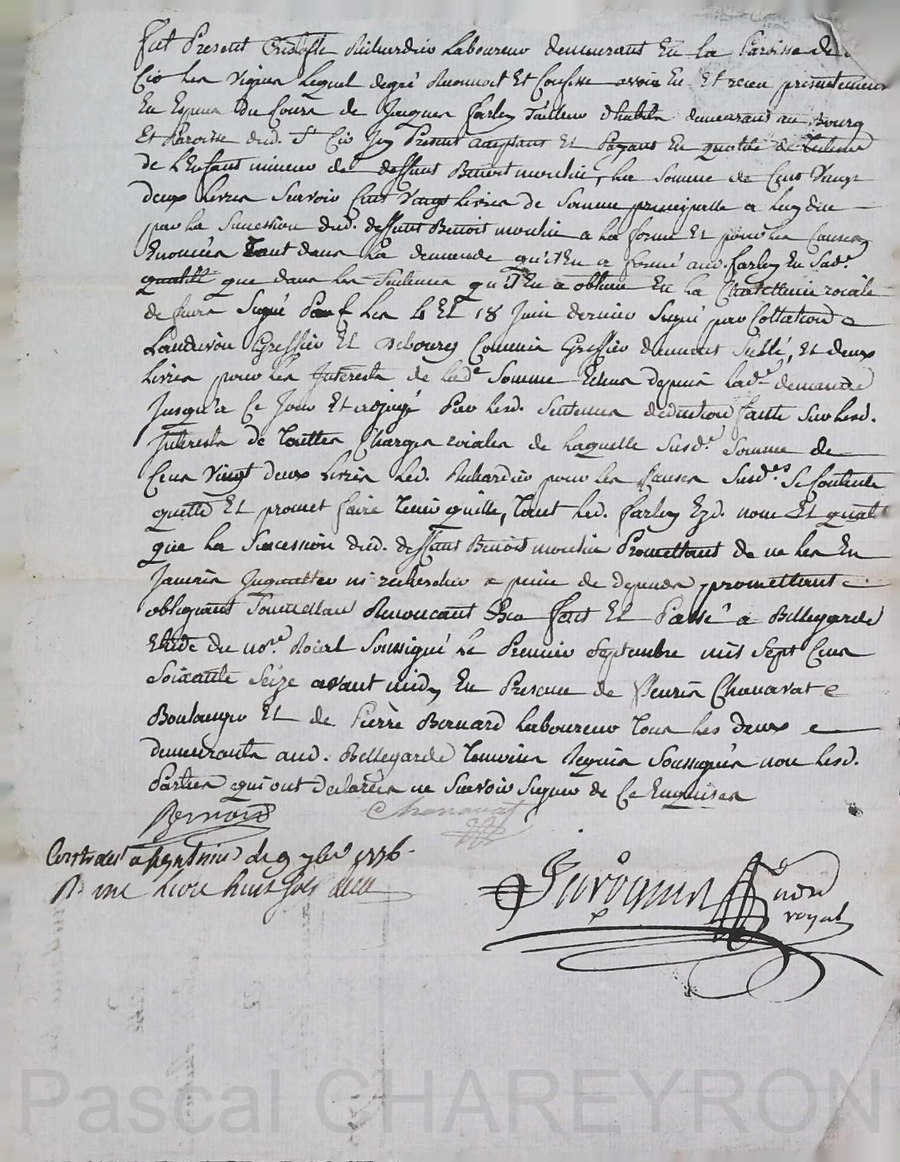 fut Present Richardier Laboureur demeurant En la Paroisse de
Cir Les Vignes Lequel degré Reconnoit Et Confesse avoir Eu Et reçu presentement
En Espece Du Cours de Jacques farley Tailleur d'habits demeurant au Bourg
Et Paroisse dud. St Cir Icy Present aceptant Et Payant En qualité de Tuteur
de L'Enfant mineur de deffunt Benoit moulin, La Somme de Cent Vingt
deux Livres Scavoir Cent Vingt Livres de Somme principalle a Luy düe
par La Succession dud. deffunt Benoit moulin a La forme Et pour les Causes
Enoncées Tant dans La demande qu'il En a formé aud. farley En Sad.
qualité que dans les Sentences qu'il En a obtenu En La Chatellenie roiale
de feurs Signé Les 16 Et 18 Juin dernier Signé par Collation
Greffier Et Commis Greffier düement Scellé, Et deux
Livres pour les Interests de lade Somme Echus depuis lade demande
Jusqu'a Ce Jour Et adjugé Par lesd. Sentences deduction faitte Sur lesd.
Interests de Touttes Charges roiales de Laquelle Susde Somme de
Cent Vingt deux Livres Led. Richardier pour les Causes Susdes Se Contente
quitte Et promet faire Tenir quitte, Tant Led. farley Ezd. nom Et qualité
que La Succession dud. deffunt Benoit moulin Promettant de ne les En
Jamais Inquietter ni rechercher a peine de depends promettant
obligeant Soumettant Renonçant fait Et Passé a Bellegarde
Etude du nore Roial Soussigné Le Premier Septembre mil Sept Cent
Soixante Seize avant midy En Presence de fleuris Chanavat
Boulanger Et de Pierre Bernard Laboureur Tous les deux
demeurants aud. Bellegarde Temoins Requis Soussignés non lesd.
Parties qui ont declarées ne Scavoir Signer de Ce Enquises
Bernard Chanavat
de 9 7bre 1776
R. une livre huit sols
nore
royal
Pascal CHAREYRON